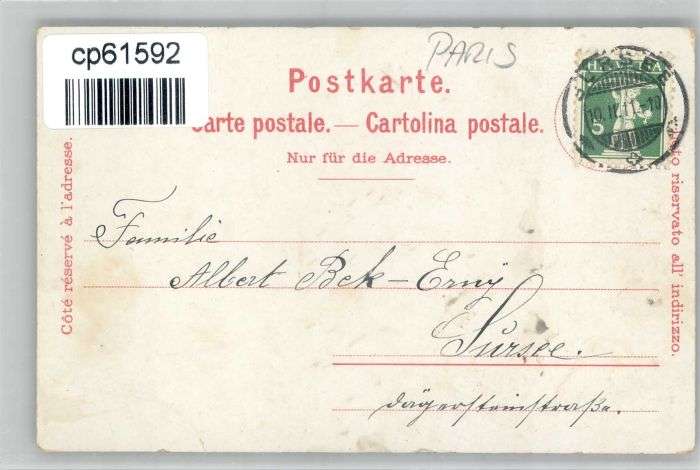 cp61592
PARIS
Postkarte.
Carte postale. — Cartolina postale.
Nur für die Adresse.
Côté réservé à l'adresse.
Lato riservato all' indirizzo.
SURSEE
HELVETIA
5
Familie
Albert Bek-Erny
Sursee.
Dägersteinstraße.